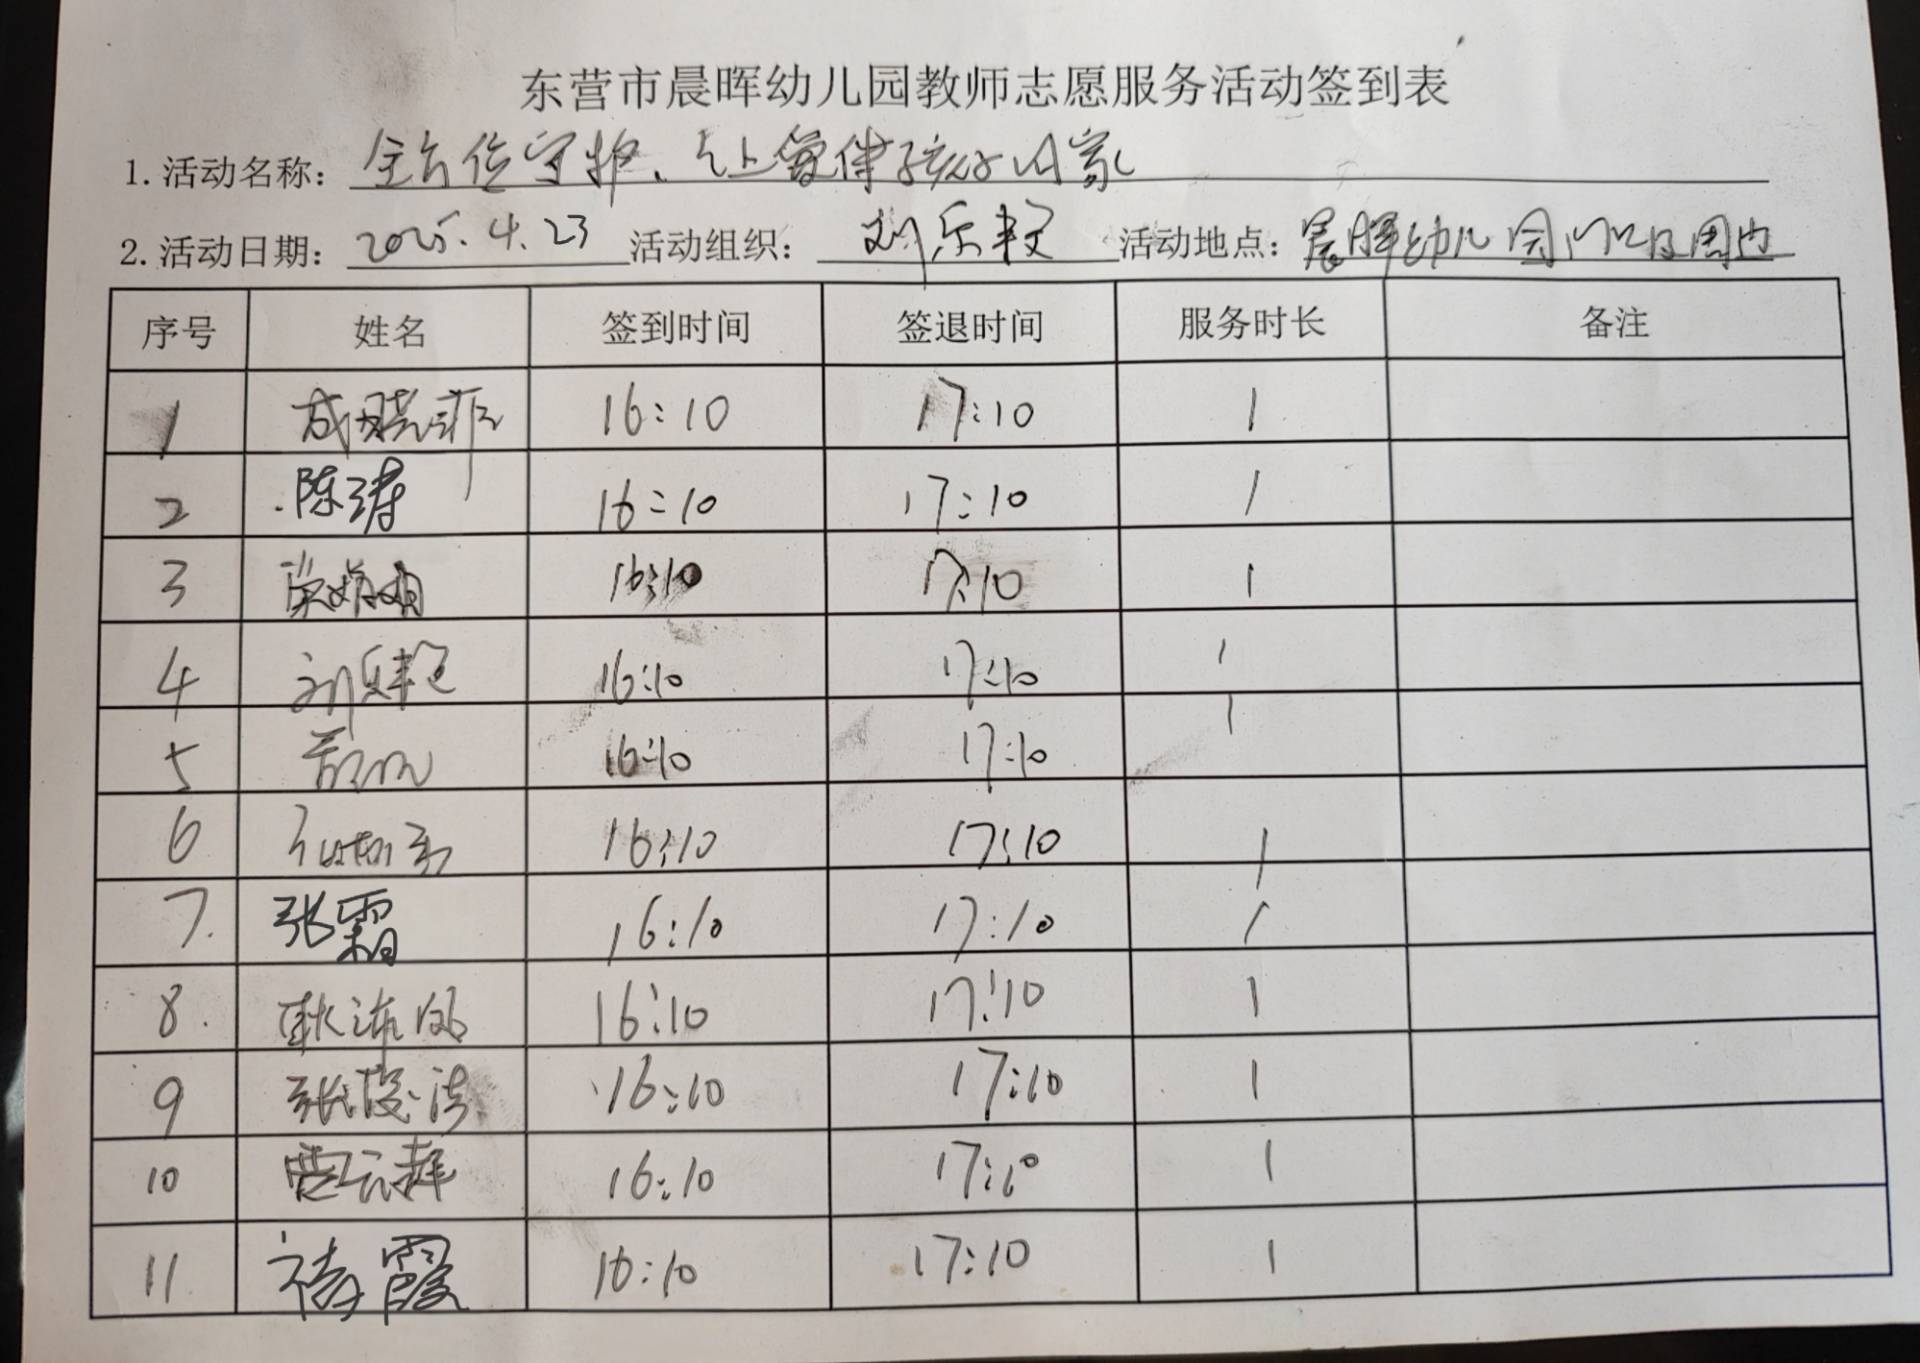 东营市晨晖幼儿园教师志愿服务活动签到表
1.活动名称：全方位守护、让爱伴孩子回家
2.活动日期：2025.4.23 活动组织：刘乐 活动地点：晨晖幼儿园门口及周边
序号 姓名 签到时间 签退时间 服务时长 备注
1 成晓菲 16:10 17:10 1
2 陈涛 16:10 17:10 1
3 16:10 17:10 1
4 刘 16:10 17:10 1
5 16:10 17:10 1
6 16:10 17:10 1
7. 张霜 16:10 17:10 1
8. 耿 16:10 17:10 1
9 张 16:10 17:10 1
10 贾云 16:10 17:10 1
11 霞 16:10 17:10 1